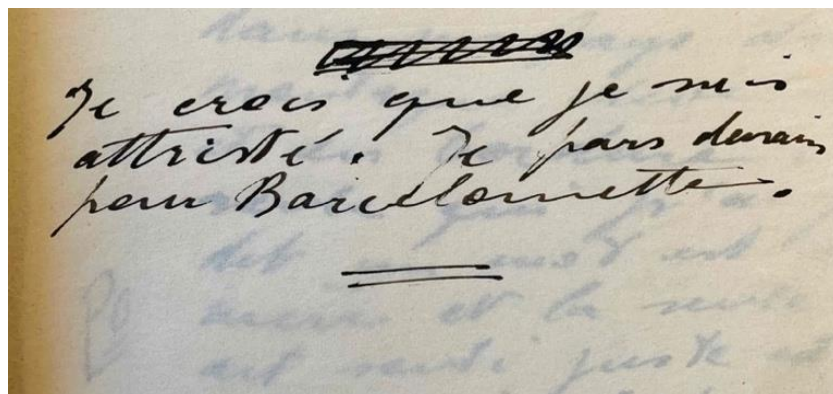 Je crois que je suis
attristé. Je pars demain
pour Barcelonnette.